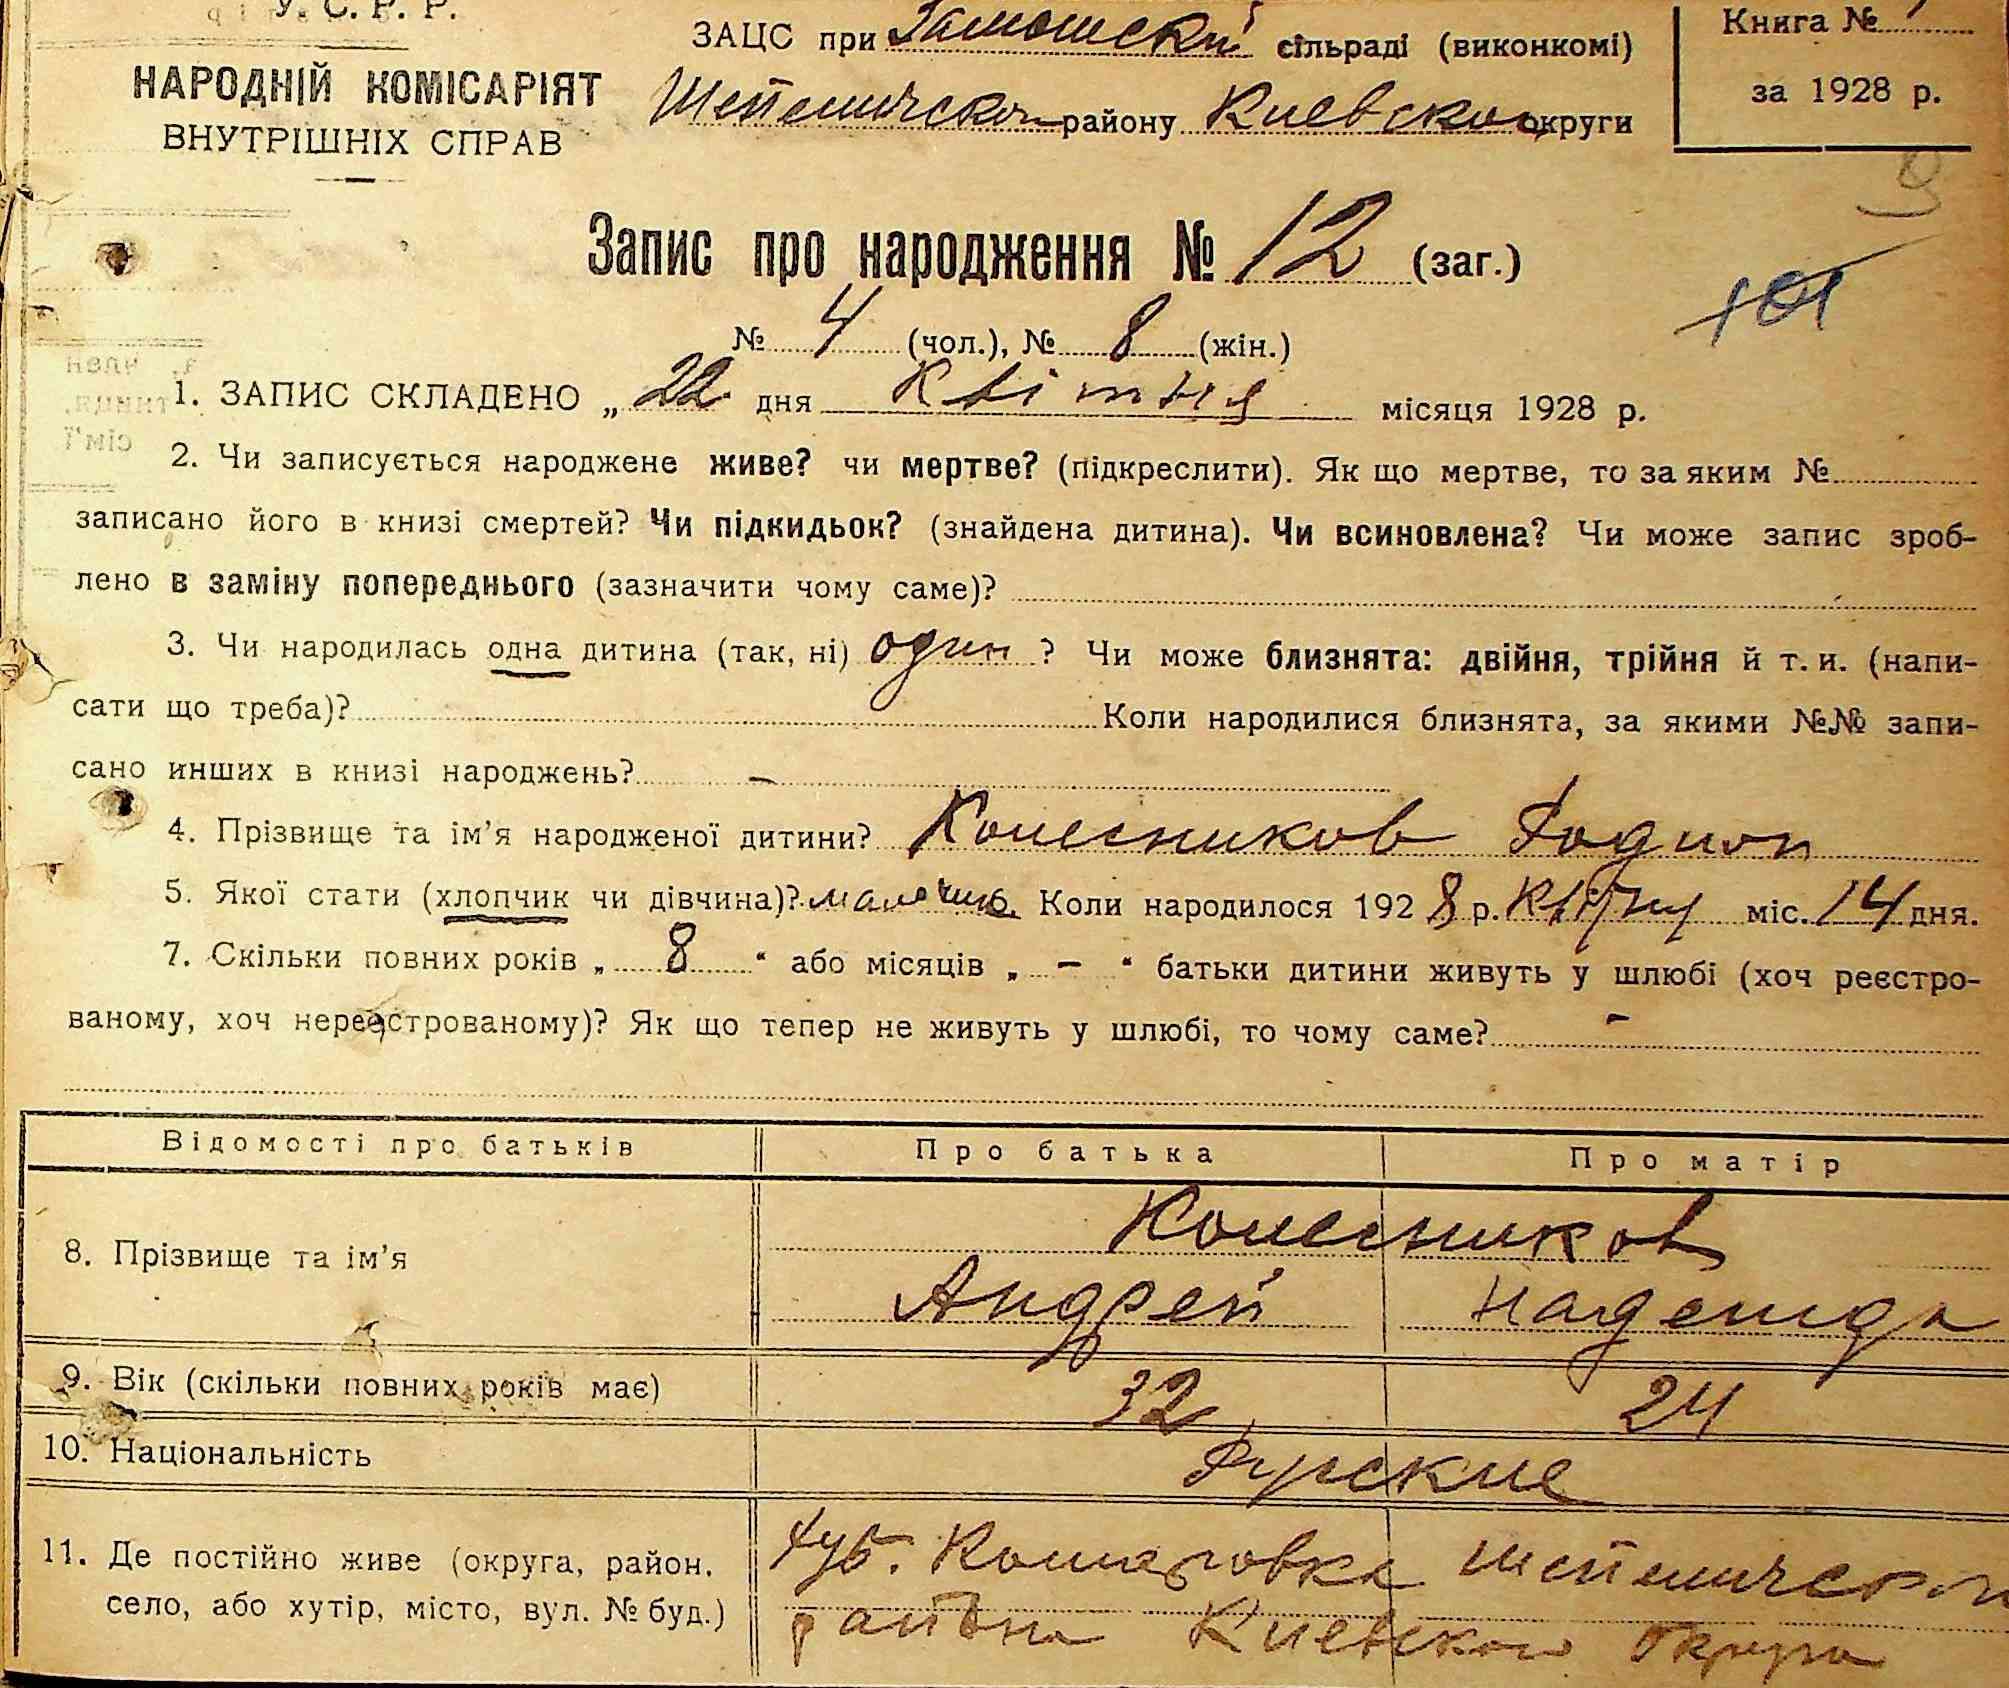 У. С. Р. Р.
ЗАЦС при Замошской сільраді (виконкомі)
Книга №
НАРОДНІЙ КОМІСАРІЯТ
ВНУТРІШНІХ СПРАВ
Шепеличского району Киевской округи
за 1928 р.
9
Запис про народження № 12 (заг.)
101
№ 4 (чол.), № 8 (жін.)
1. ЗАПИС СКЛАДЕНО „ 22 дня Квітня місяця 1928 р.
2. Чи записується народжене живе? чи мертве? (підкреслити). Як що мертве, то за яким №
записано його в книзі смертей? Чи підкидьок? (знайдена дитина). Чи всиновлена? Чи може запис зроб-
лено в заміну попереднього (зазначити чому саме)?
3. Чи народилась одна дитина (так, ні) один ? Чи може близнята: двійня, трійня й т. и. (напи-
сати що треба)? Коли народилися близнята, за якими №№ запи-
сано инших в книзі народжень? –
4. Прізвище та ім’я народженої дитини? Колесников Родион
5. Якої стати (хлопчик чи дівчина)? мальчик. Коли народилося 1928 р. Квітня міс. 14 дня.
7. Скільки повних років „ 8 “ або місяців „ – “ батьки дитини живуть у шлюбі (хоч реєстро-
ваному, хоч нереєстрованому)? Як що тепер не живуть у шлюбі, то чому саме? –
Відомості про батьків Про батька Про матір
8. Прізвище та ім’я Колесников
Андрей Надежда
9. Вік (скільки повних років має) 32 24
10. Національність Русские
11. Де постійно живе (округа, район, село, або хутір, місто, вул. № буд.)
хут. Комаровка Шепеличского
района Киевского округа